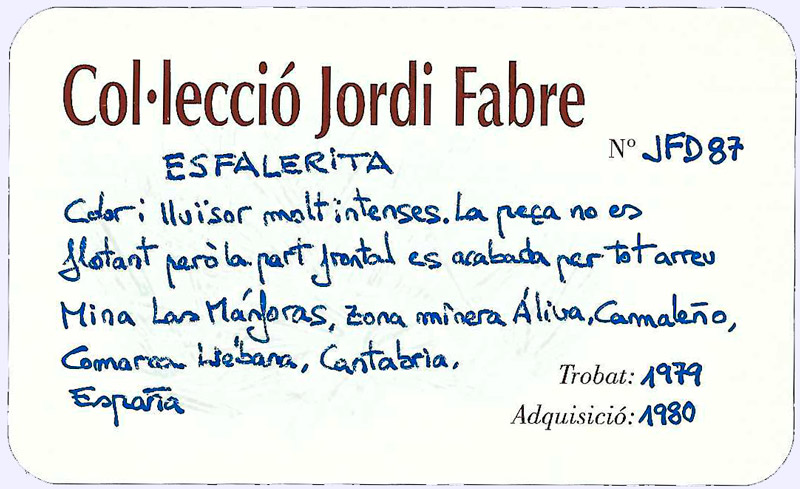 Col·lecció Jordi Fabre
Nº JFD87
ESFALERITA
Color i lluïsor molt intenses. La peça no es
flotant però la part frontal es acabada per tot arreu
Mina Las Mánforas, zona minera Áliva, Camaleño,
Comarca Liébana, Cantabria,
España
Trobat: 1979
Adquisició: 1980